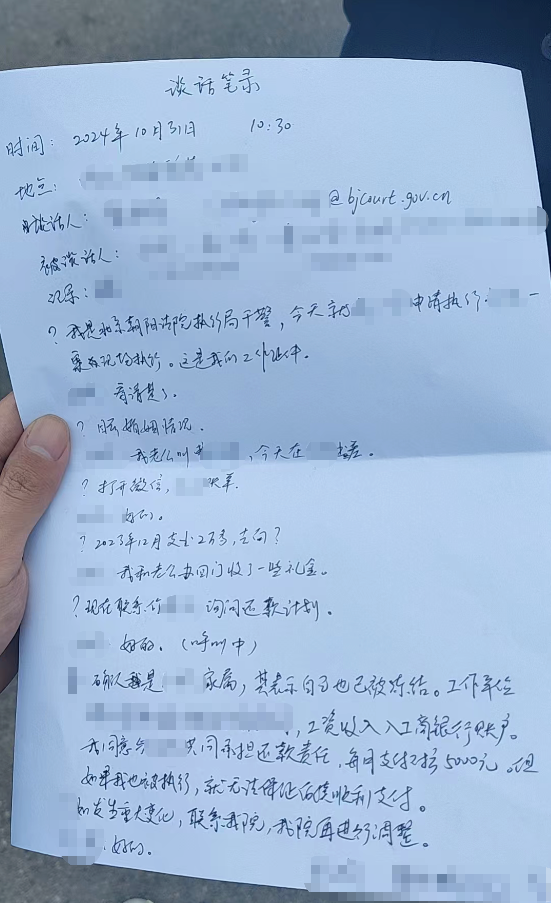 谈话笔录
时间：2024年10月31日 10:30
地点：
谈话人： @bjcourt.gov.cn
被谈话人：
记录：
？我是北京朝阳法院执行局干警，今天就 申请执行 一
案来现场执行。这是我的工作证件。
看清楚了。
？ 婚姻情况。
我老公叫 ，今天在 出差。
？打开微信， 账单
好的。
？2023年12月支出2万多，去向？
我和老公办回门收了一些礼金。
？现在联系你 询问还款计划。
好的。（呼叫中）
确认我是 家属，其表示自己也已被冻结。工作单位
，工资收入入工商银行账户。
我同意与 共同承担还款责任，每月支付 5000元。但
如果我也被执行，就无法保证 顺利支付。
如发生重大变化，联系我院，我院再进行调整。
好的。